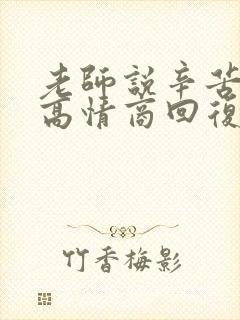 老師說辛苦
高情商回復
竹香梅影